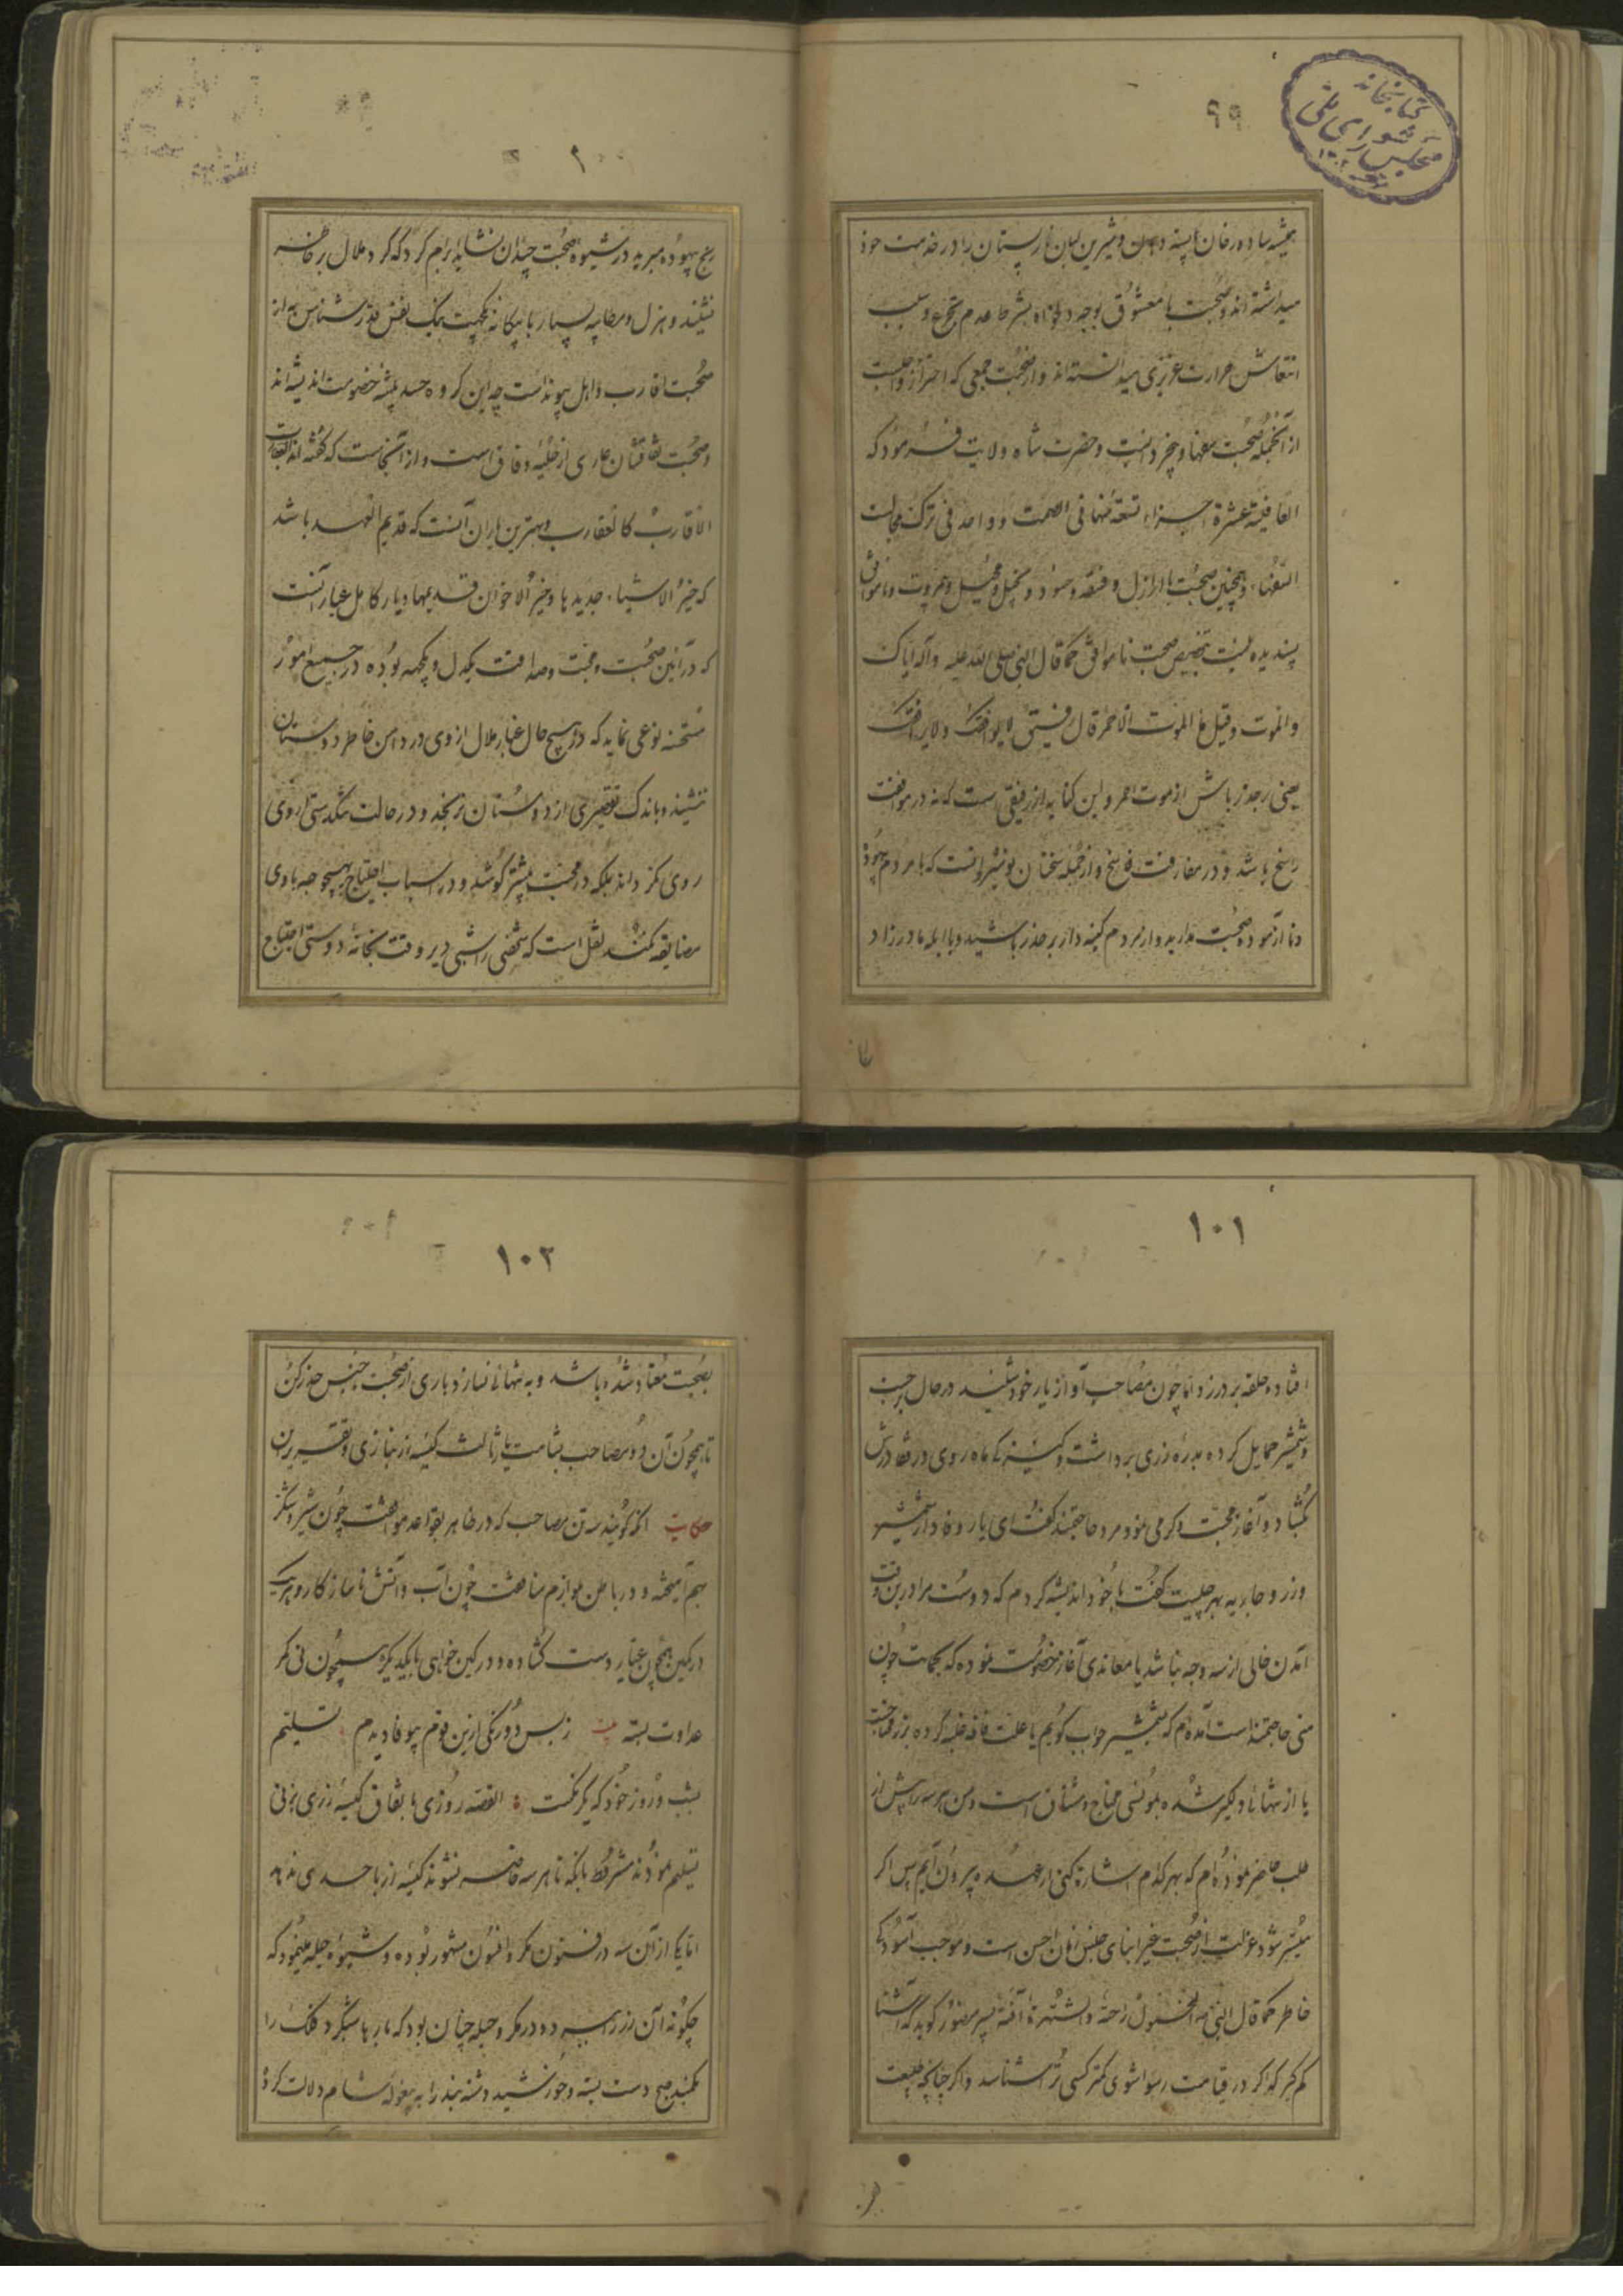 ۹۹
کتابخانه
مجلس شورای ملی
همیشه ساده رخان پسته دهان و شیرین لبان نارپستان را در خدمت خود
میداشته اند و صحبت با معشوق بوجود
انتعاش حرارت غریزی میدانسته اند و از صحبت جمعی که احتراز واجبست
از آنجمله صحبت سفها و حضرت شاه ولایت فرمود که
العافیة عشرة اجزاء تسعة منها فی الصمت و واحد فی ترک مجالست
السفهاء و همچنین صحبت با اراذل و فسقه و حسود و بخیل
پسندیده نیست بتخصیص صحبت ناموافق کما قال النبی صلی الله علیه و آله ایاک
والموت وقیل ما الموت الاحمر قال رفیق لا یوافقک ولا یرافقک
یعنی بر حذر باش از موت احمر و این کنایه از رفیقی است که نه در موافقت
راسخ باشد و در مفارقت فاسخ و از جمله سخنان نوشیروانست که با مردم بیهوده
و ناآزموده صحبت مدارید و از مردم کینه دار بر حذر باشید و با ابله مادرزاد
۱۰۰
رنج بیهوده مبرید در شیوه صحبت چندان نشاید ابرام کرد که گرد ملال بر خاطر
نشیند و هزل و مطایبه بسیار با
صحبت اقارب و اهل پیوند است چه این گروه حسد پیشه خصومت اندیشه اند
و صحبت نفاقشان عاری از حلیه وفاق است و از آنجاست که گفته اند
الاقارب کالعقارب و بهترین یاران آنست که قدیم العهد باشد
که خیر الاشیاء جدیدها و خیر الاخوان قدیمها و یار کامل عیار آنست
که در آئین صحبت و محبت و صداقت یکدل و یکجهة بوده در جمیع امور
مستحسنه نوعی نماید که در هیچ حال غبار ملال از وی در دامن خاطر دوستان
ننشیند و باندک تقصیری از دوستان نرنجد و در حالت تنگدستی از وی
روی نگرداند بلکه در محبت بیشتر کوشد و در اسباب احتیاج بهیچوجه با وی
مضایقه نکند نقل است که شخصی را شبی دیر وقت بخانه دوستی احتیاج
۱۰۱
افتاده حلقه بر در زد اما چون مصاحب آواز یار خود شنید در حال برجست
و شمشیر حمایل کرده بدره زری برداشت و کنیزکی ماه روی در قفا درش
بگشاد و آغاز محبت و گرمی نمود مرد حاجتمند گفت ای یار وفادار شمشیر
و زر و جاریه بهر چیست گفت با خود اندیشه کردم که دوست مرا درین وقت
آمدن خالی از سه وجه نباشد یا معاندی آغاز خصومت نموده که بحمایت چون
منی حاجتمند است آمده ام که بشمشیر جواب گویم یا علت فاقه غلبه کرده بزر محتاجست
یا از تنهائی دلگیر شده بمونسی محتاج و مشتاق است و من هر سه را پیش از
طلب حاضر نموده ام که بهر کدام اشاره کنی از عهده بیرون آیم پس اگر
میسر شود عزلت از صحبت غیر ابنای جنس زمان احسن است و موجب آسودگی
خاطر کما قال النبی الخمول راحة والشهرة آفة پسر منصور گوید که آشنا
کم گیر که اگر در قیامت رسوا شوی کمتر کسی ترا شناسد و اگر چنانچه طبیعت
۱۰۲
بصحبت معتاد شده باشد و به تنهائی نسازد باری از صحبت جنس حذر کن
تا همچون آن دو مصاحب بشامت یار ثالث کیسه زر نبازی و
حکایت آنکه گویند سه تن مصاحب که در ظاهر بقواعد موافقت چون شیر و شکر
بهم آمیخته و در باطن بلوازم منافقت چون آب و آتش ناسازگار و هر یک
در کمین همچون عیار دست گشاده و در کین خواهی با یکدیگر همچون نی کمر
عداوت بسته بیت ز بس دورنگی ازین قوم بیوفا دیدم تسلیم
بشب و روز خود که یکرنگست القصه روزی باتفاق کیسه زری بزنی
تسلیم نمودند مشروط بآنکه تا هر سه حاضر نشوند کیسه زر باحدی ندهد
اما یکی از آن سه در فنون مکر و افسون مشهور بوده و شیوه حیله مینمود که
چگونه آن زر را ببرد و در مکر و حیله چنان بود که بارها شبگرد فلک را
بکمند صبح دست بسته و خورشید دشنه بند را به بیغوله شام دلالت کرد